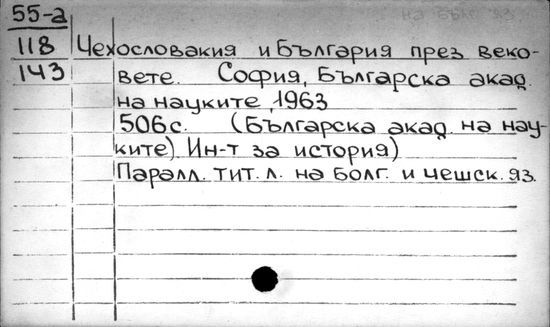 55-а
на бълг. яз.
118
Чехословакия и България през веко-
143
вете. София, Българска акад.
на науките, 1963
506с. (Българска акад. на нау-
ките). Ин-т за история)
Паралл. тит. л. на болг. и чешск. яз.